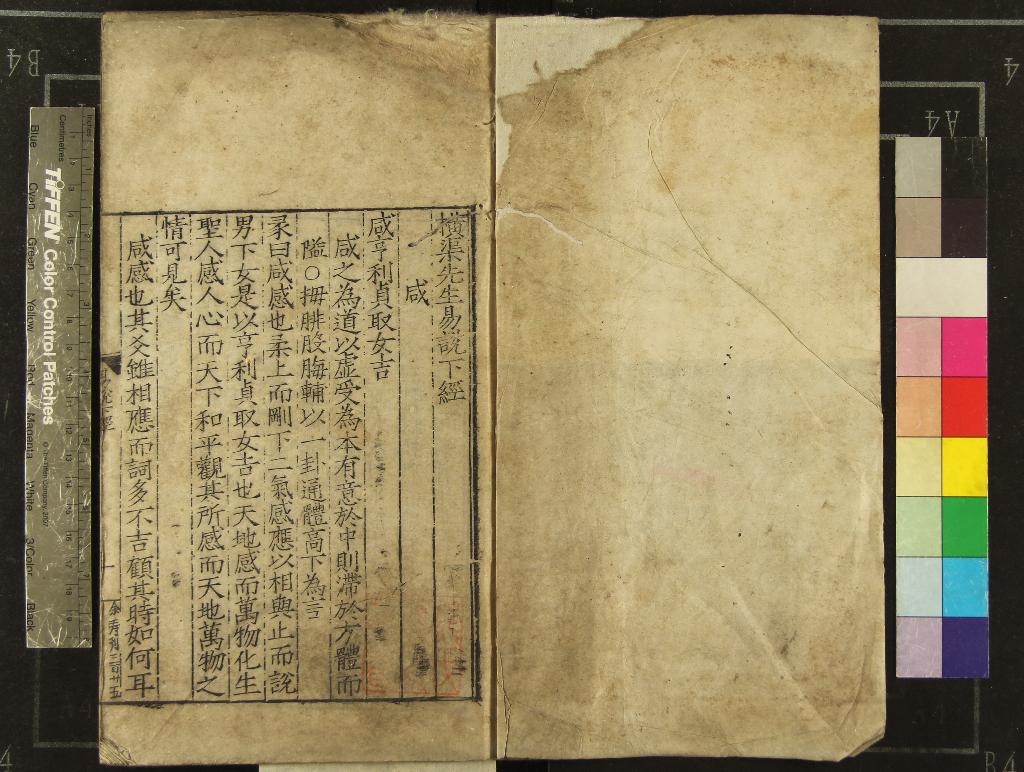 橫渠先生易說下經
咸
咸亨利貞取女吉
咸之為道以虛受為本有意於中則滯於方體而
隘○拇腓股脢輔以一卦通體高下為言
彖曰咸感也柔上而剛下二氣感應以相與止而說
男下女是以亨利貞取女吉也天地感而萬物化生
聖人感人心而天下和平觀其所感而天地萬物之
情可見矣
咸感也其爻雖相應而詞多不吉顧其時如何耳
易說下經
一
余秀刊三百廿五
TIFFEN Color Control Patches
Centimetres
Inches
Blue
Cyan
Green
Yellow
Red
Magenta
White
3/Color
Black
© The Tiffen Company, 2007
B4
A4
4
4
B4